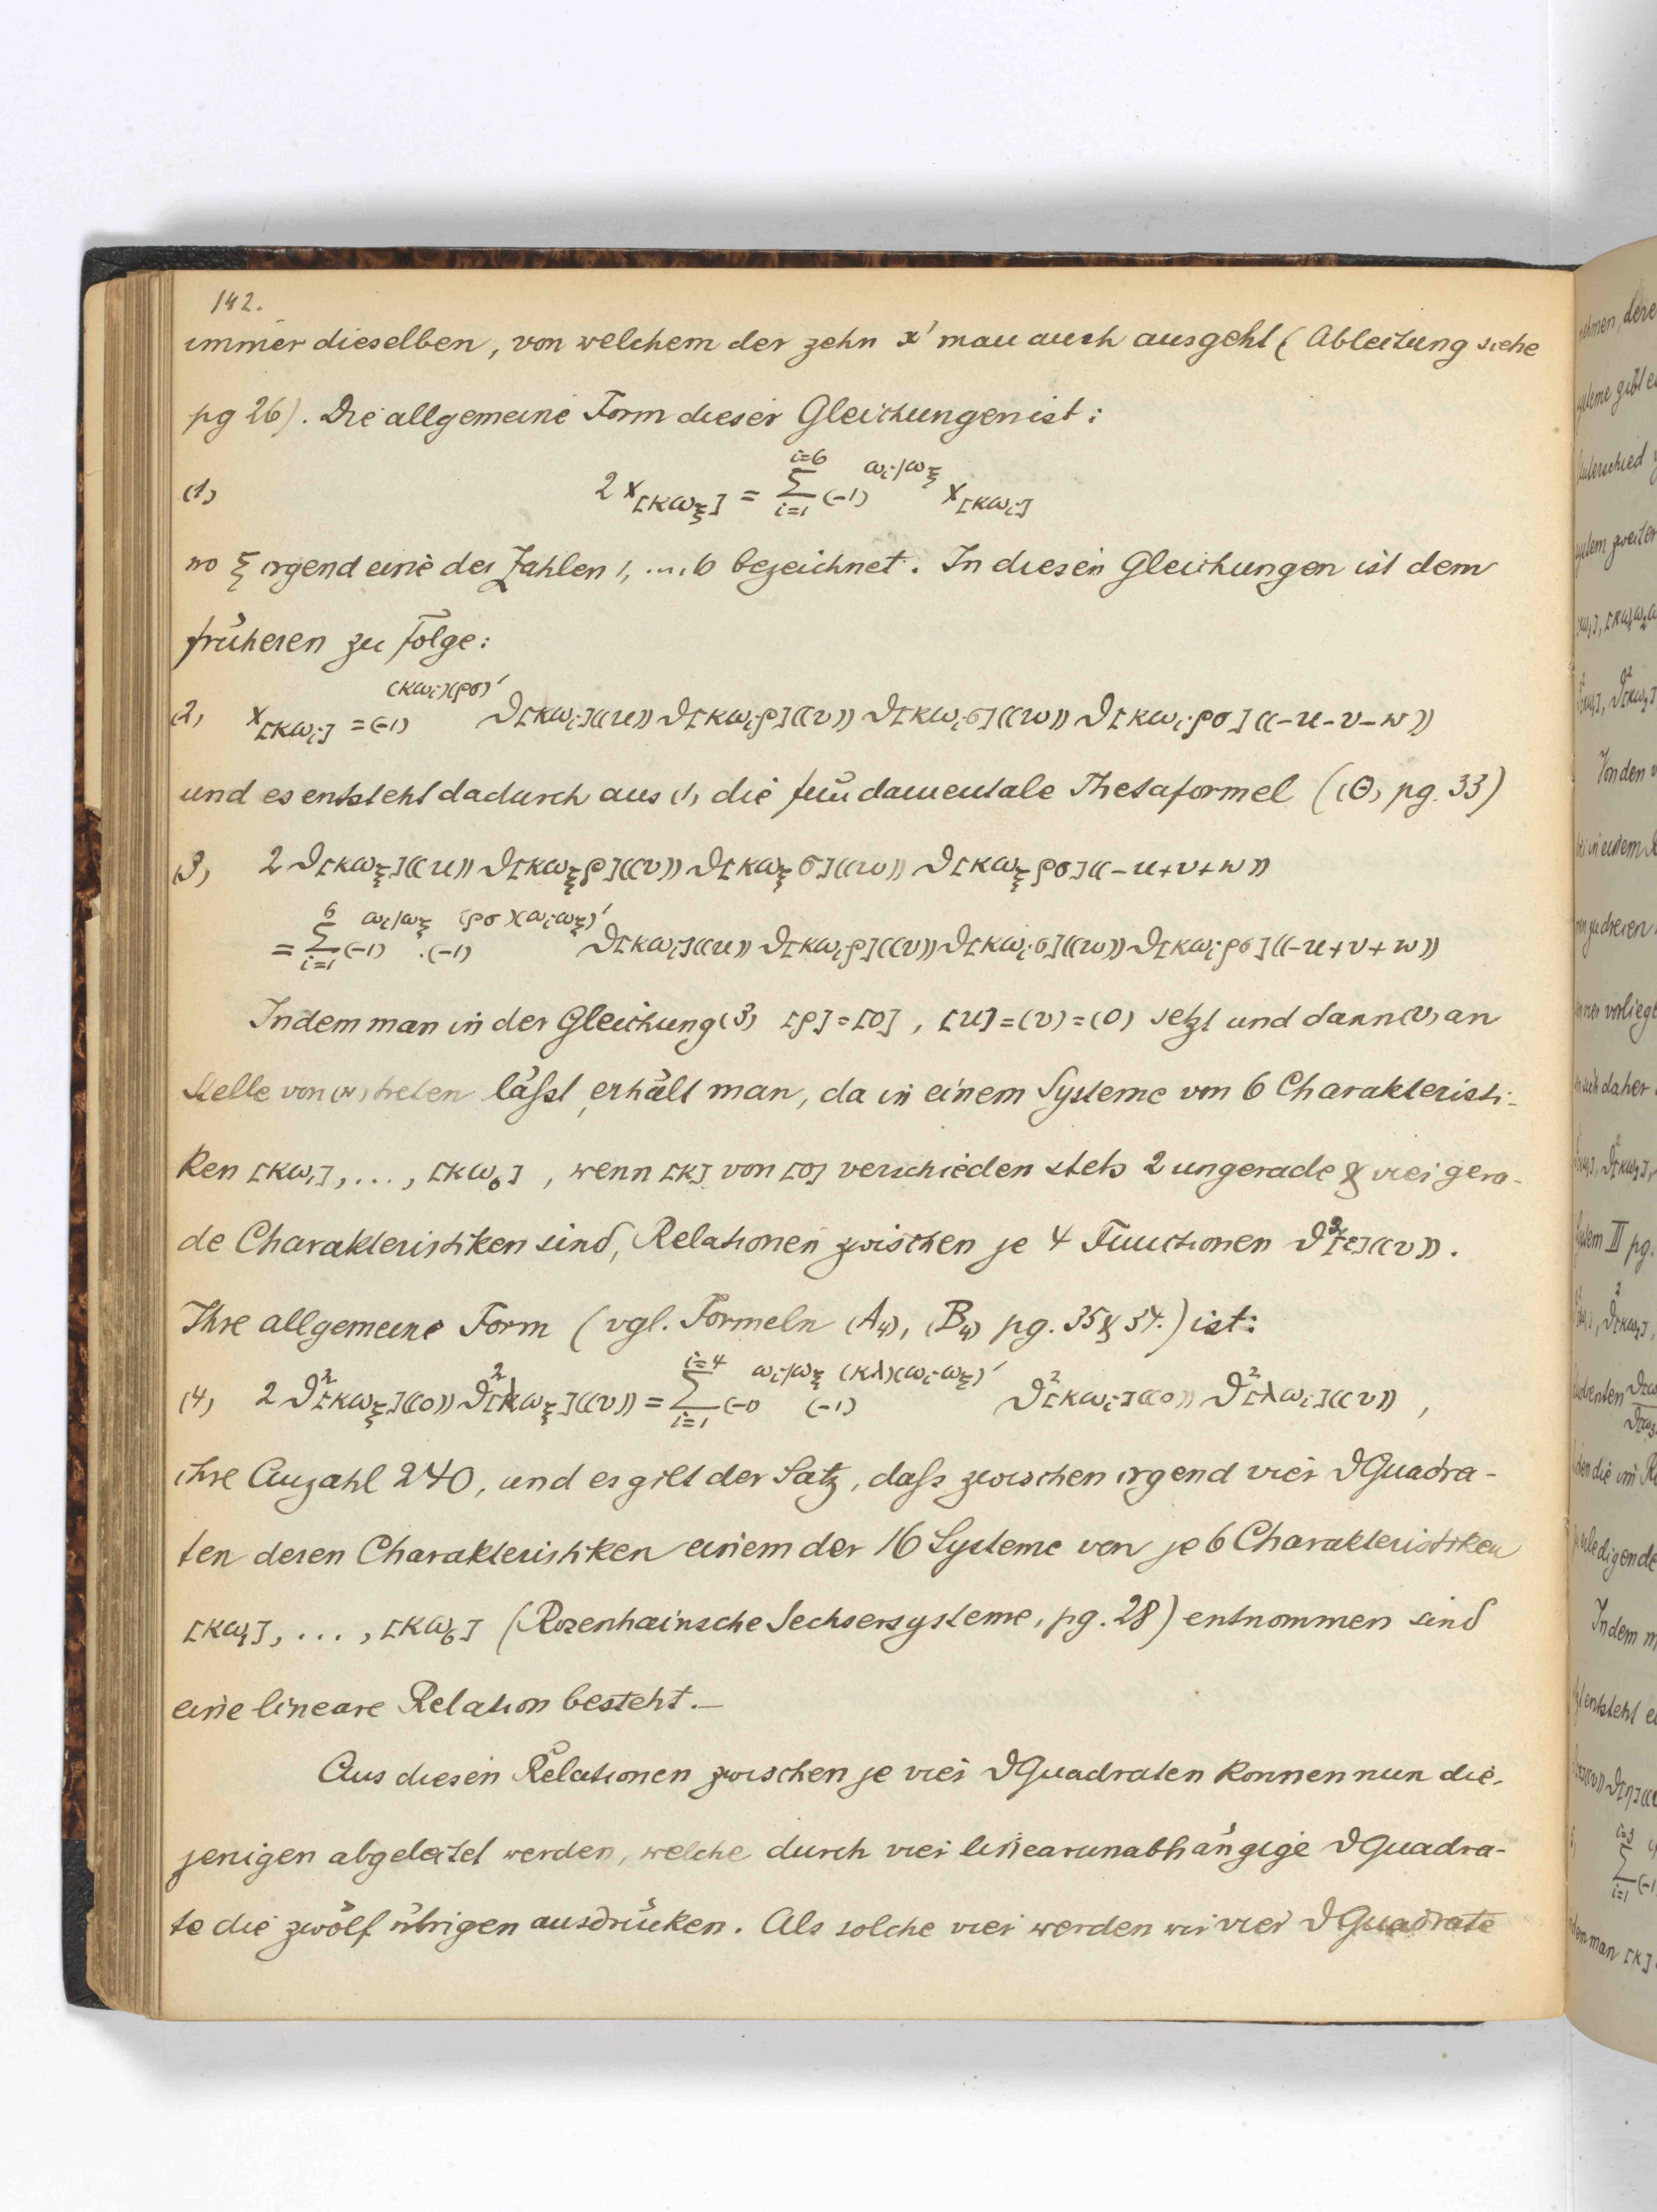 142.
immer dieselben, von welchem der zehn x' man auch ausgeht (Ableitung siehe
pg 26). Die allgemeine Form dieser Gleichungen ist:
(1) 2 x_[κω_ξ] = Σ_{i=1}^{i=6} (-1)^{ω_i/ω_ξ} x_[κω_i]
wo ξ irgend eine der Zahlen 1, ..., 6 bezeichnet. In diesen Gleichungen ist dem
früheren zu Folge:
(2) x_[κω_i] = (-1)^{(κω_i)(ρσ)'} ϑ[κω_i]((u)) ϑ[κω_iρ]((v)) ϑ[κω_iσ]((w)) ϑ[κω_iρσ]((-u-v-w))
und es entsteht dadurch aus (1) die fundamentale Thetaformel ((Θ) pg. 33)
(3) 2 ϑ[κω_ξ]((u)) ϑ[κω_ξρ]((v)) ϑ[κω_ξσ]((w)) ϑ[κω_ξρσ]((-u+v+w))
= Σ_{i=1}^{6} (-1)^{ω_i/ω_ξ} .(-1)^{(ρσ)(ω_iω_ξ)'} ϑ[κω_i]((u)) ϑ[κω_iρ]((v)) ϑ[κω_iσ]((w)) ϑ[κω_iρσ]((-u+v+w))
Indem man in der Gleichung (3) [ρ]=[0], [u]=(v)=(0) setzt und dann (v) an
Stelle von (w) treten lässt, erhält man, da in einem Systeme von 6 Charakteristi-
ken [κω_1], ..., [κω_6], wenn [κ] von [0] verschieden stets 2 ungerade & vier gera-
de Charakteristiken sind, Relationen zwischen je 4 Functionen ϑ²[ε]((v)).
Ihre allgemeine Form (vgl. Formeln (A_4), (B_4) pg. 35 & 37.) ist:
(4) 2 ϑ²[κω_ξ]((0)) ϑ²[λω_ξ]((v)) = Σ_{i=1}^{i=4} (-1)^{ω_i/ω_ξ} (-1)^{(κλ)(ω_iω_ξ)'} ϑ²[κω_i]((0)) ϑ²[λω_i]((v)),
ihre Anzahl 240, und es gilt der Satz, dass zwischen irgend vier ϑQuadra-
ten deren Charakteristiken einem der 16 Systeme von je 6 Charakteristiken
[κω_1], ..., [κω_6] (Rosenhainsche Sechsersysteme, pg. 28) entnommen sind
eine lineare Relation besteht.—
Aus diesen Relationen zwischen je vier ϑQuadraten können nun die-
jenigen abgeleitet werden, welche durch vier linearunabhängige ϑQuadra-
te die zwölf übrigen ausdrücken. Als solche vier werden wir vier ϑQuadrate